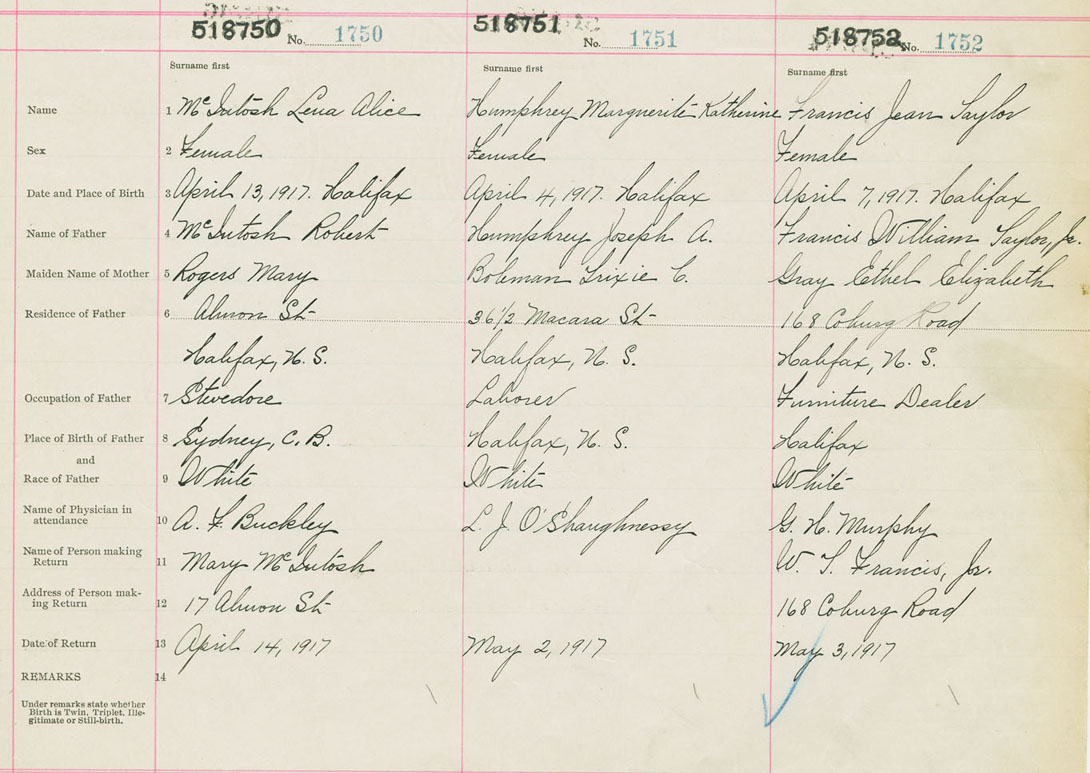 518750 No. 1750 518751 No. 1751 518752 No. 1752
Surname first Surname first Surname first
Name 1 McIntosh Lena Alice Humphrey Marguerite Katherine Francis Jean Taylor
Sex 2 Female Female Female
Date and Place of Birth 3 April 13, 1917. Halifax April 4, 1917. Halifax April 7, 1917. Halifax
Name of Father 4 McIntosh Robert Humphrey Joseph A. Francis William Taylor, Jr.
Maiden Name of Mother 5 Rogers Mary Bohman Trixie C. Gray Ethel Elizabeth
Residence of Father 6 Almon St 36 1/2 Macara St 168 Coburg Road
Halifax, N. S. Halifax, N. S. Halifax, N. S.
Occupation of Father 7 Stevedore Laborer Furniture Dealer
Place of Birth of Father 8 Sydney, C. B. Halifax, N. S. Halifax
and
Race of Father 9 White White White
Name of Physician in
attendance 10 A. F. Buckley L. J. O'Shaughnessy G. H. Murphy
Name of Person making
Return 11 Mary McIntosh W. T. Francis, Jr.
Address of Person mak-
ing Return 12 17 Almon St 168 Coburg Road
Date of Return 13 April 14, 1917 May 2, 1917 May 3, 1917
REMARKS 14
Under remarks state whether
Birth is Twin, Triplet, Ille-
gitimate or Still-birth.